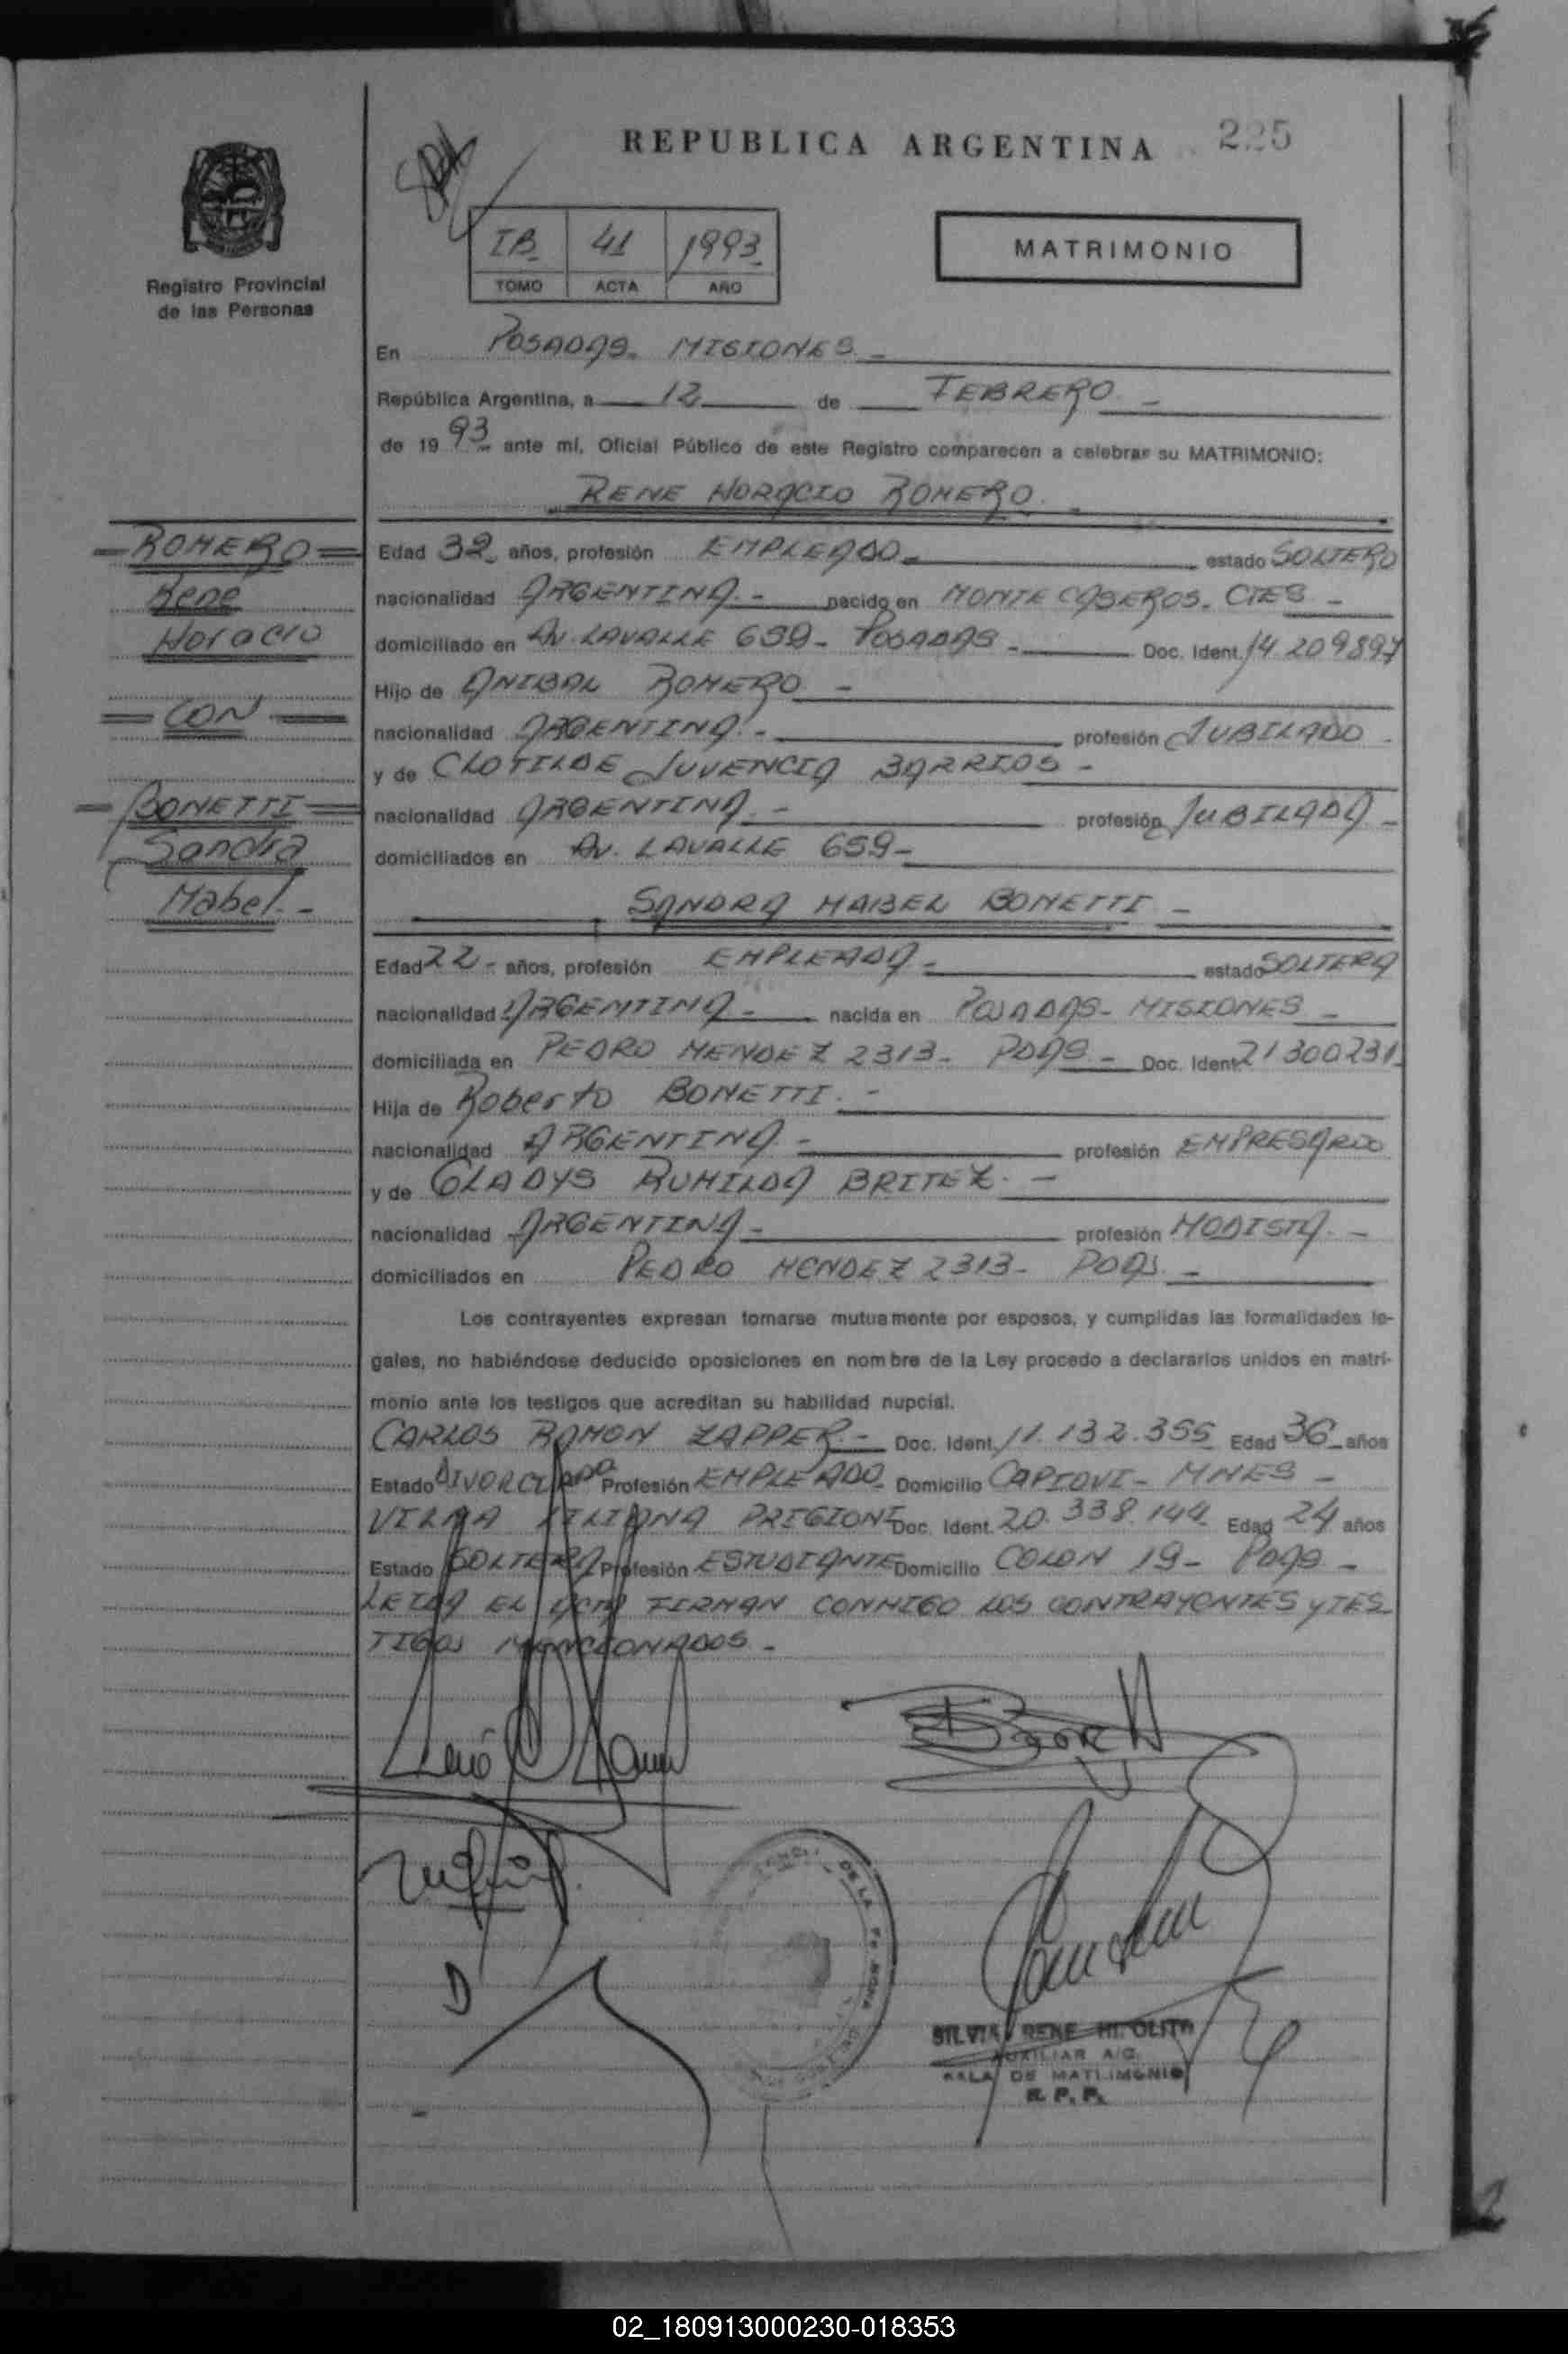 REPUBLICA ARGENTINA
225
Registro Provincial
de las Personas
IB 41 1993
TOMO ACTA AÑO
MATRIMONIO
En POSADAS. MISIONES -
República Argentina, a 12 de FEBRERO -
de 1993 ante mí, Oficial Público de este Registro comparecen a celebrar su MATRIMONIO:
RENE HORACIO ROMERO.
=ROMERO=
Rene
Horacio
= CON =
=BONETTI=
Sandra
Mabel. -
Edad 32 años, profesión EMPLEADO - estado SOLTERO
nacionalidad ARGENTINA - nacido en MONTE CASEROS. CTES -
domiciliado en AV. LAVALLE 659 - POSADAS - Doc. Ident. 14 209897
Hijo de ANIBAL ROMERO -
nacionalidad ARGENTINA - profesión JUBILADO -
y de CLOTILDE JUVENCIA BARRIOS -
nacionalidad ARGENTINA - profesión JUBILADA -
domiciliados en AV. LAVALLE 659 -
SANDRA MABEL BONETTI -
Edad 22 - años, profesión EMPLEADA - estado SOLTERA
nacionalidad ARGENTINA - nacida en POSADAS - MISIONES -
domiciliada en PEDRO MENDEZ 2313 - PDAS - Doc. Ident. 21300231
Hija de Roberto BONETTI. -
nacionalidad ARGENTINA - profesión EMPRESARIO
y de GLADYS RUMILDA BRITEZ. -
nacionalidad ARGENTINA - profesión MODISTA. -
domiciliados en PEDRO MENDEZ 2313 - PDAS. -
Los contrayentes expresan tomarse mutuamente por esposos, y cumplidas las formalidades le-
gales, no habiéndose deducido oposiciones en nombre de la Ley procedo a declararlos unidos en matri-
monio ante los testigos que acreditan su habilidad nupcial.
CARLOS RAMON ZAPPER - Doc. Ident. 11.132.355 Edad 36 años
Estado DIVORCIADO Profesión EMPLEADO Domicilio CAPIOVI - MNES -
VILMA LILIANA PRIGIONI Doc. Ident. 20.338.144 Edad 24 años
Estado SOLTERA Profesión ESTUDIANTE Domicilio COLON 19 - PDAS -
LEIDA EL ACTA FIRMAN CONMIGO LOS CONTRAYENTES y TES
TIGOS MENCIONADOS -
DE LA
SILVIA RENE
AUXILIAR A/C.
SALA DE MATRIMONIO
R. P. P.
02_180913000230-018353